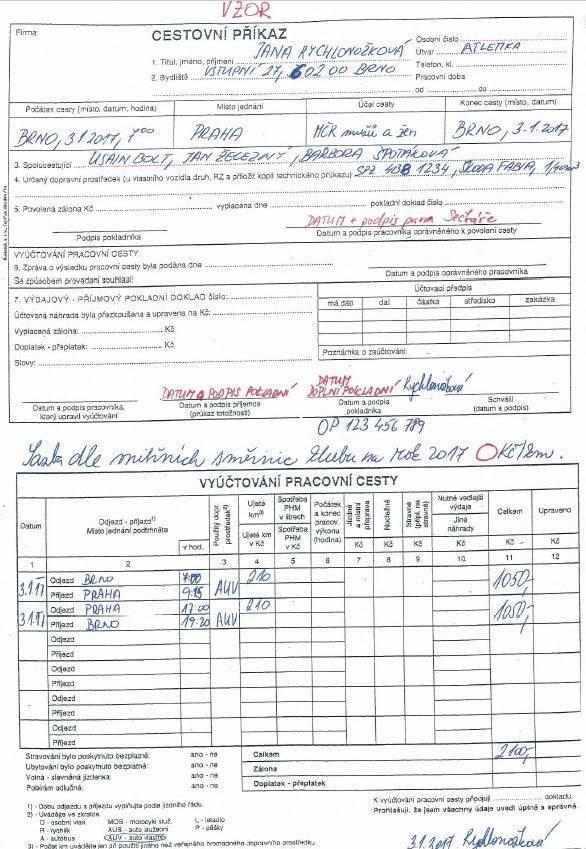 VZOR
Firma
CESTOVNÍ PŘÍKAZ
Osobní číslo
1. Titul, jméno, příjmení JANA RYCHLONOŽKOVÁ
Útvar ATLETIKA
2. Bydliště VSTUPNÍ 27, 602 00 BRNO
Telefon, kl.
Pracovní doba
od do
Počátek cesty (místo, datum, hodina) Místo jednání Účel cesty Konec cesty (místo, datum)
BRNO, 3.1.2017, 7 00 PRAHA MČR mužů a žen BRNO, 3.1.2017
3. Spolucestující USAIN BOLT, JAN ŽELEZNÝ, BARBORA ŠPOTÁKOVÁ
4. Určený dopravní prostředek (u vlastního vozidla druh, RZ a přiložit kopii technického průkazu) SPZ 4B8 1234, ŠKODA FABIA,
5. Povolená záloha Kč vyplacena dne pokladní doklad číslo:
DATUM + podpis pana Sekretáře
Podpis pokladníka Datum a podpis pracovníka oprávněného k povolení cesty
VYÚČTOVÁNÍ PRACOVNÍ CESTY
6. Zpráva o výsledku pracovní cesty byla podána dne
Se způsobem provedení souhlasí:
Datum a podpis oprávněného pracovníka
7. VÝDAJOVÝ - PŘÍJMOVÝ POKLADNÍ DOKLAD číslo:
Účtovací předpis
Účtovaná náhrada byla přezkoušena a upravena na Kč:
má dáti dal částka středisko zakázka
Vyplacená záloha: Kč
Doplatek - přeplatek: Kč
Slovy:
Poznámka o zaúčtování:
DATUM A PODPIS POKLADNÍ
DATUM DOPLNÍ POKLADNÍ Rychlonožková
Datum a podpis pracovníka, který upravil vyúčtování
Datum a podpis příjemce (průkaz totožnosti)
Datum a podpis pokladníka
Schválil (datum a podpis)
OP 123 456 789
Sazba dle vnitřních směrnic klubu na rok 2017 0 Kč/km.
VYÚČTOVÁNÍ PRACOVNÍ CESTY
Datum
Odjezd - příjezd1)
Místo jednání podtrhněte
v hod.
Použitý dopr. prostředek2)
Ujeté km3)
Ujeté km v Kč
Spotřeba PHM v litrech
Spotřeba PHM v Kč
Počátek a konec pracov. výkonu (hodina)
Jízdné a místní přeprava
Nocležné
Stravné (příp. na stravné)
Nutné vedlejší výdaje
Jiné náhrady
Celkem
Upraveno
Kč Kč Kč Kč Kč Kč
1 2 3 4 5 6 7 8 9 10 11 12
3.1.17 Odjezd BRNO 7:00 AUV 210 1050,-
Příjezd PRAHA 9:15
3.1.17 Odjezd PRAHA 17:00 AUV 210 1050,-
Příjezd BRNO 19:20
Odjezd
Příjezd
Odjezd
Příjezd
Odjezd
Příjezd
Odjezd
Příjezd
Stravování bylo poskytnuto bezplatně: ano - ne Celkem 2100,-
Ubytování bylo poskytnuto bezplatně: ano - ne
Záloha
Volná - slevněná jízdenka: ano - ne
Pobírám odlučné: ano - ne
Doplatek - přeplatek
1) - Dobu odjezdu a příjezdu vyplňujte podle jízdního řádu.
K vyúčtování pracovní cesty připojuji dokladů.
2) - Uvádějte ve zkratce
Prohlašuji, že jsem všechny údaje uvedl úplně a správně.
O - osobní vlak MOS - motocykl služ. L - letadlo
R - rychlík AUS - auto služební P - pěšky
A - autobus AUV - auto vlastní
3) - Počet km uvádějte jen při použití jiného než veřejného hromadného dopravního prostředku.
3.1.2017 Rychlonožková